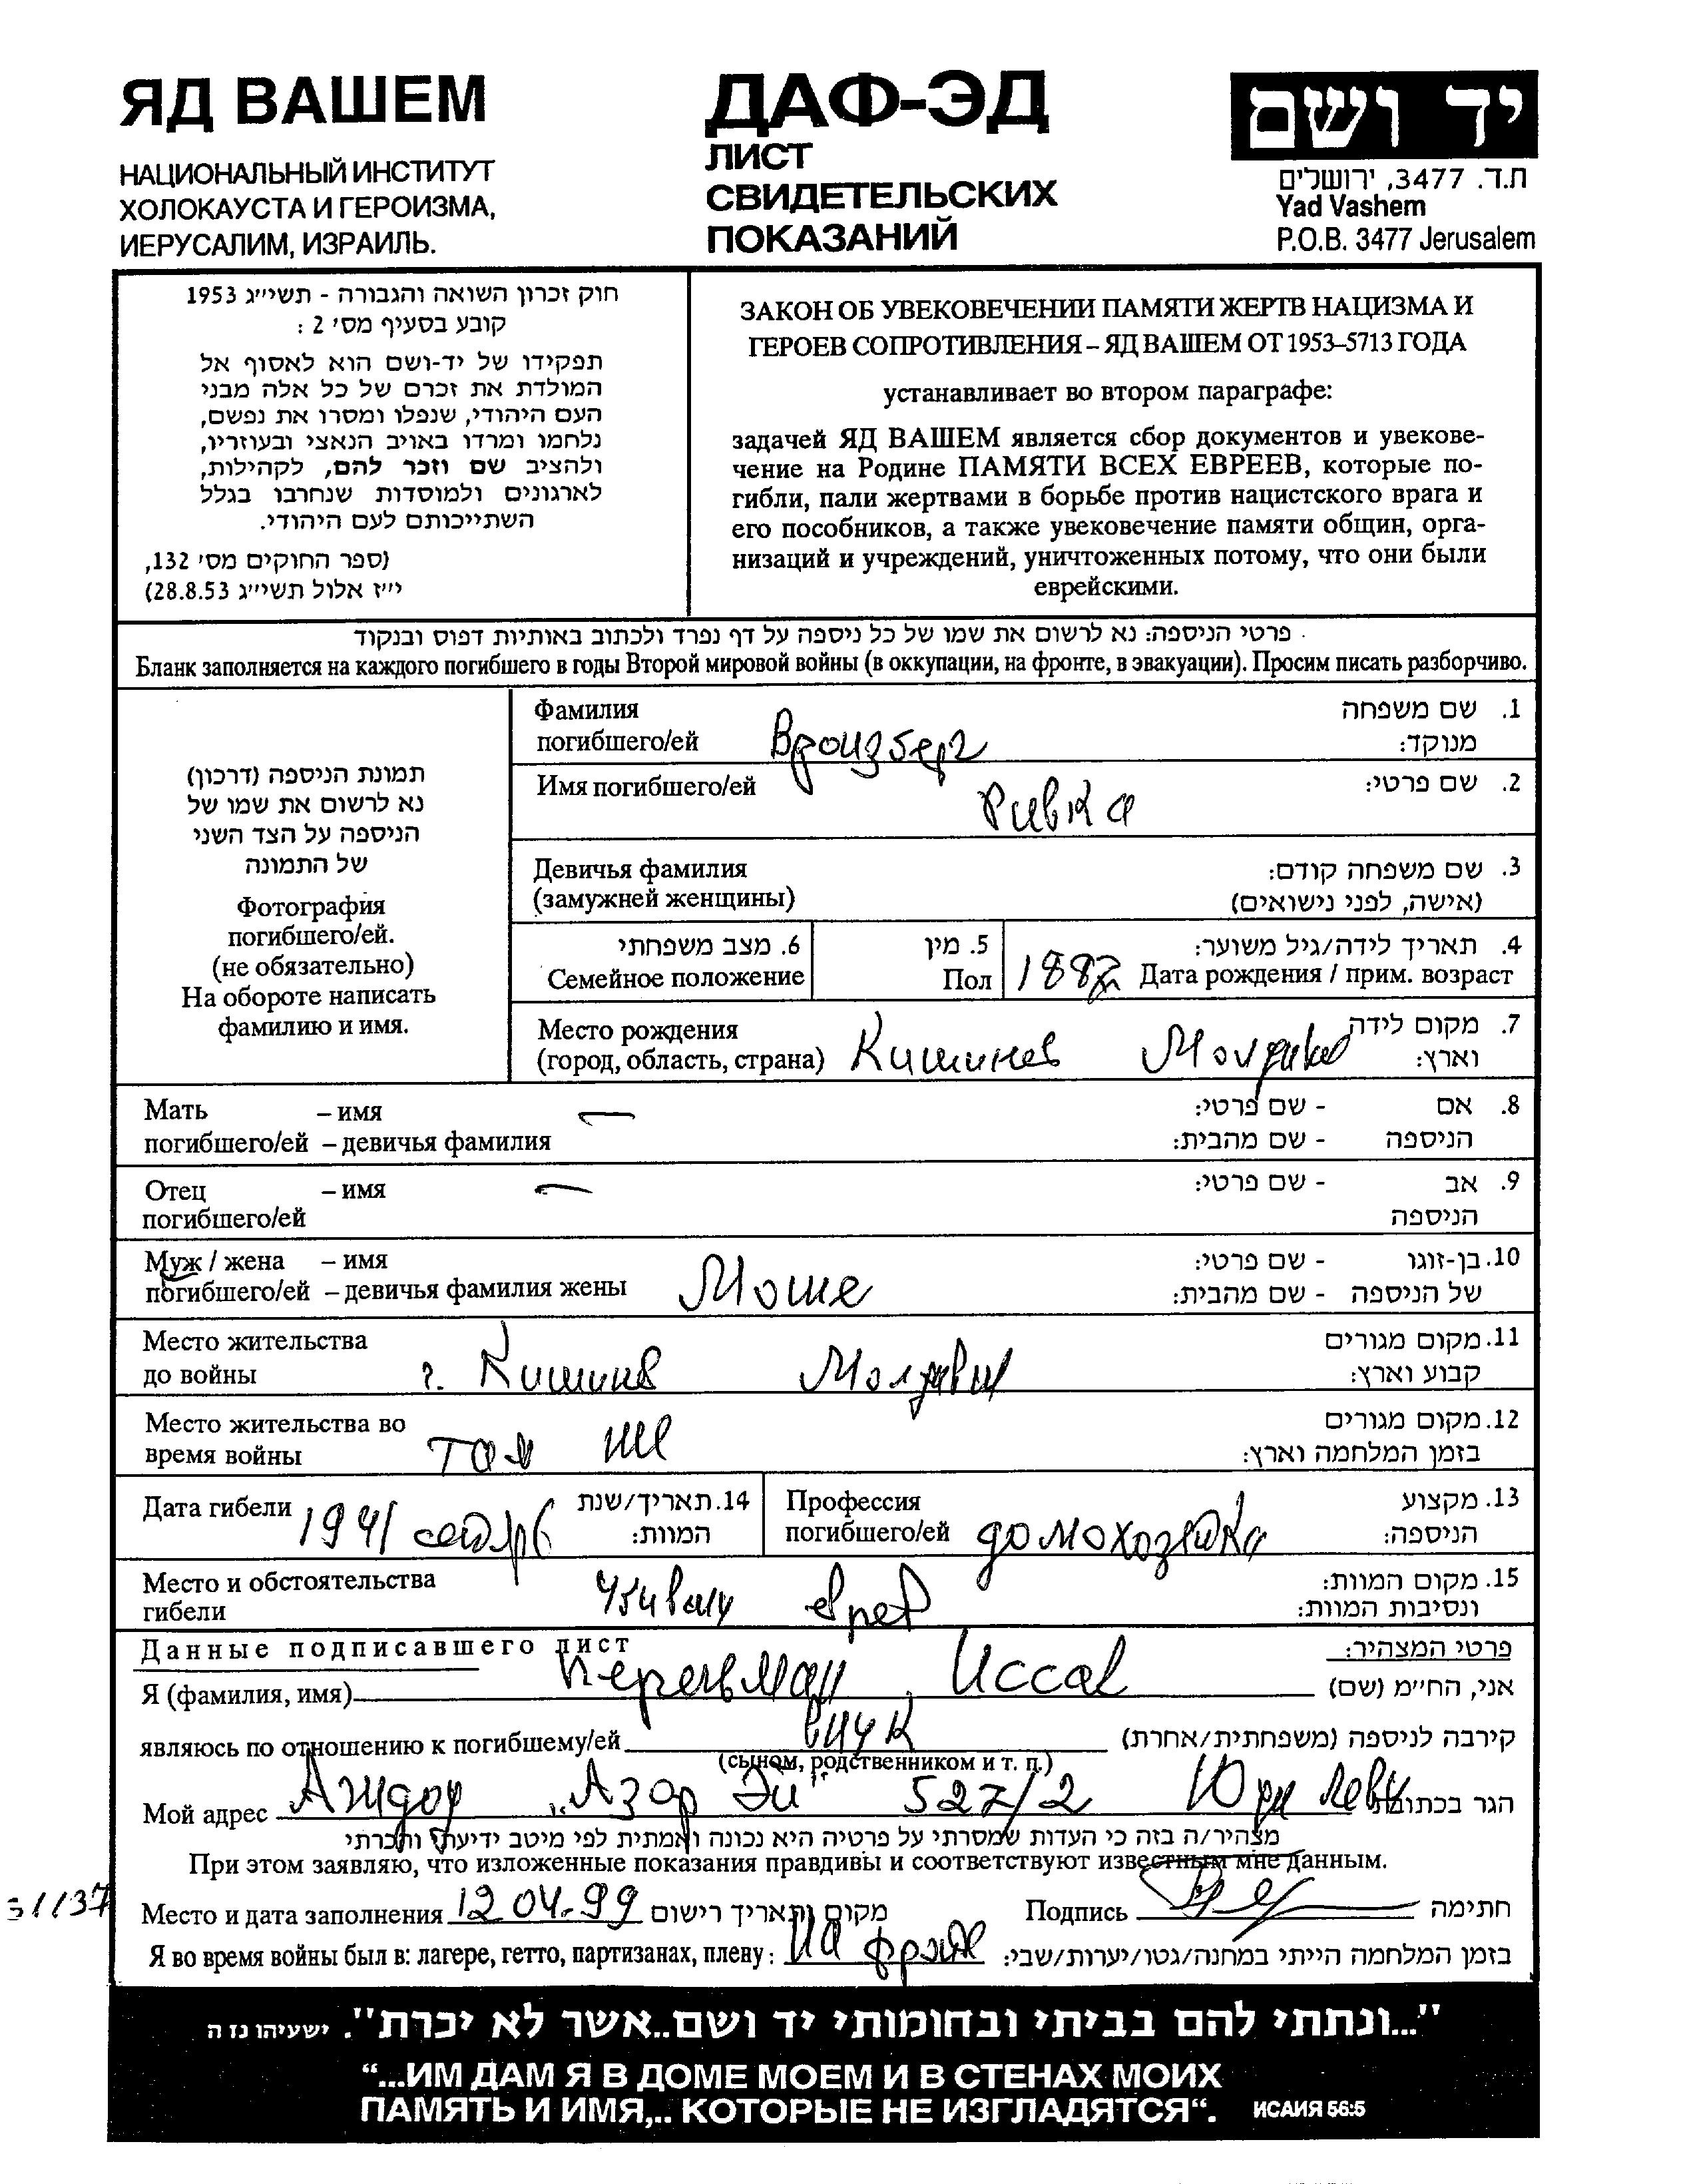 ЯД ВАШЕМ
НАЦИОНАЛЬНЫЙ ИНСТИТУТ
ХОЛОКАУСТА И ГЕРОИЗМА,
ИЕРУСАЛИМ, ИЗРАИЛЬ.
ДАФ-ЭД
ЛИСТ
СВИДЕТЕЛЬСКИХ
ПОКАЗАНИЙ
יד ושם
ת.ד. 3477, ירושלים
Yad Vashem
P.O.B. 3477 Jerusalem
חוק זכרון השואה והגבורה - תשי״ג 1953
קובע בסעיף מס׳ 2 :
תפקידו של יד-ושם הוא לאסוף אל
המולדת את זכרם של כל אלה מבני
העם היהודי, שנפלו ומסרו את נפשם,
נלחמו ומרדו באויב הנאצי ובעוזריו,
ולהציב שם וזכר להם, לקהילות,
לארגונים ולמוסדות שנחרבו בגלל
השתייכותם לעם היהודי.
(ספר החוקים מס׳ 132,
י״ז אלול תשי״ג 28.8.53)
ЗАКОН ОБ УВЕКОВЕЧЕНИИ ПАМЯТИ ЖЕРТВ НАЦИЗМА И
ГЕРОЕВ СОПРОТИВЛЕНИЯ – ЯД ВАШЕМ ОТ 1953–5713 ГОДА
устанавливает во втором параграфе:
задачей ЯД ВАШЕМ является сбор документов и увекове-
чение на Родине ПАМЯТИ ВСЕХ ЕВРЕЕВ, которые по-
гибли, пали жертвами в борьбе против нацистского врага и
его пособников, а также увековечение памяти общин, орга-
низаций и учреждений, уничтоженных потому, что они были
еврейскими.
פרטי הניספה: נא לרשום את שמו של כל ניספה על דף נפרד ולכתוב באותיות דפוס ובנקוד
Бланк заполняется на каждого погибшего в годы Второй мировой войны (в оккупации, на фронте, в эвакуации). Просим писать разборчиво.
תמונת הניספה (דרכון)
נא לרשום את שמו של
הניספה על הצד השני
של התמונה
Фотография
погибшего/ей.
(не обязательно)
На обороте написать
фамилию и имя.
Фамилия 1. שם משפחה
погибшего/ей Вроизберг מנוקד:
Имя погибшего/ей Ривка 2. שם פרטי:
Девичья фамилия 3. שם משפחה קודם:
(замужней женщины) (אישה, לפני נישואים)
6. מצב משפחתי 5. מין 4. תאריך לידה/גיל משוער:
Семейное положение Пол 1882 Дата рождения / прим. возраст
Место рождения 7. מקום לידה
(город, область, страна) Кишинев וארץ:
Мать – имя אם - שם פרטי: 8.
погибшего/ей – девичья фамилия הניספה - שם מהבית:
Отец – имя אב - שם פרטי: 9.
погибшего/ей הניספה
Муж / жена – имя 10. בן-זוגו - שם פרטי:
погибшего/ей – девичья фамилия жены Моше של הניספה - שם מהבית:
Место жительства 11. מקום מגורים
до войны г. Кишинв Молдавии קבוע וארץ:
Место жительства во 12. מקום מגורים
время войны там же בזמן המלחמה וארץ:
Дата гибели 1941 14. תאריך/שנת המוות:
Профессия 13. מקצוע
погибшего/ей домохозяйка הניספה:
Место и обстоятельства 15. מקום המוות:
гибели ונסיבות המוות:
Данные подписавшего лист פרטי המצהיר:
Я (фамилия, имя) אני, הח״מ (שם)
являюсь по отношению к погибшему/ей внук קירבה לניספה (משפחתית/אחרת)
(сыном, родственником и т. п.)
Мой адрес Ашдод "Азор Эй" 527/2 Юри Леви הגר בכתובת
מצהיר/ה בזה כי העדות שמסרתי על פרטיה היא נכונה ואמתית לפי מיטב ידיעתי והכרתי
При этом заявляю, что изложенные показания правдивы и соответствуют известным мне данным.
Место и дата заполнения 12.04.99 מקום ותאריך רישום Подпись חתימה
Я во время войны был в: лагере, гетто, партизанах, плену: на фронте בזמן המלחמה הייתי במחנה/גטו/יערות/שבי:
"...ונתתי להם בביתי ובחומותי יד ושם..אשר לא יכרת". ישעיהו נז ה
“...ИМ ДАМ Я В ДОМЕ МОЕМ И В СТЕНАХ МОИХ
ПАМЯТЬ И ИМЯ,.. КОТОРЫЕ НЕ ИЗГЛАДЯТСЯ“. ИСАИЯ 56:5